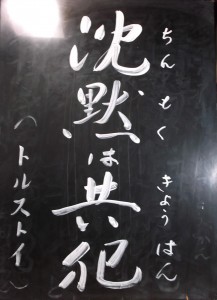 沈黙は共犯
ちんもく きょうはん
(トルストイ)